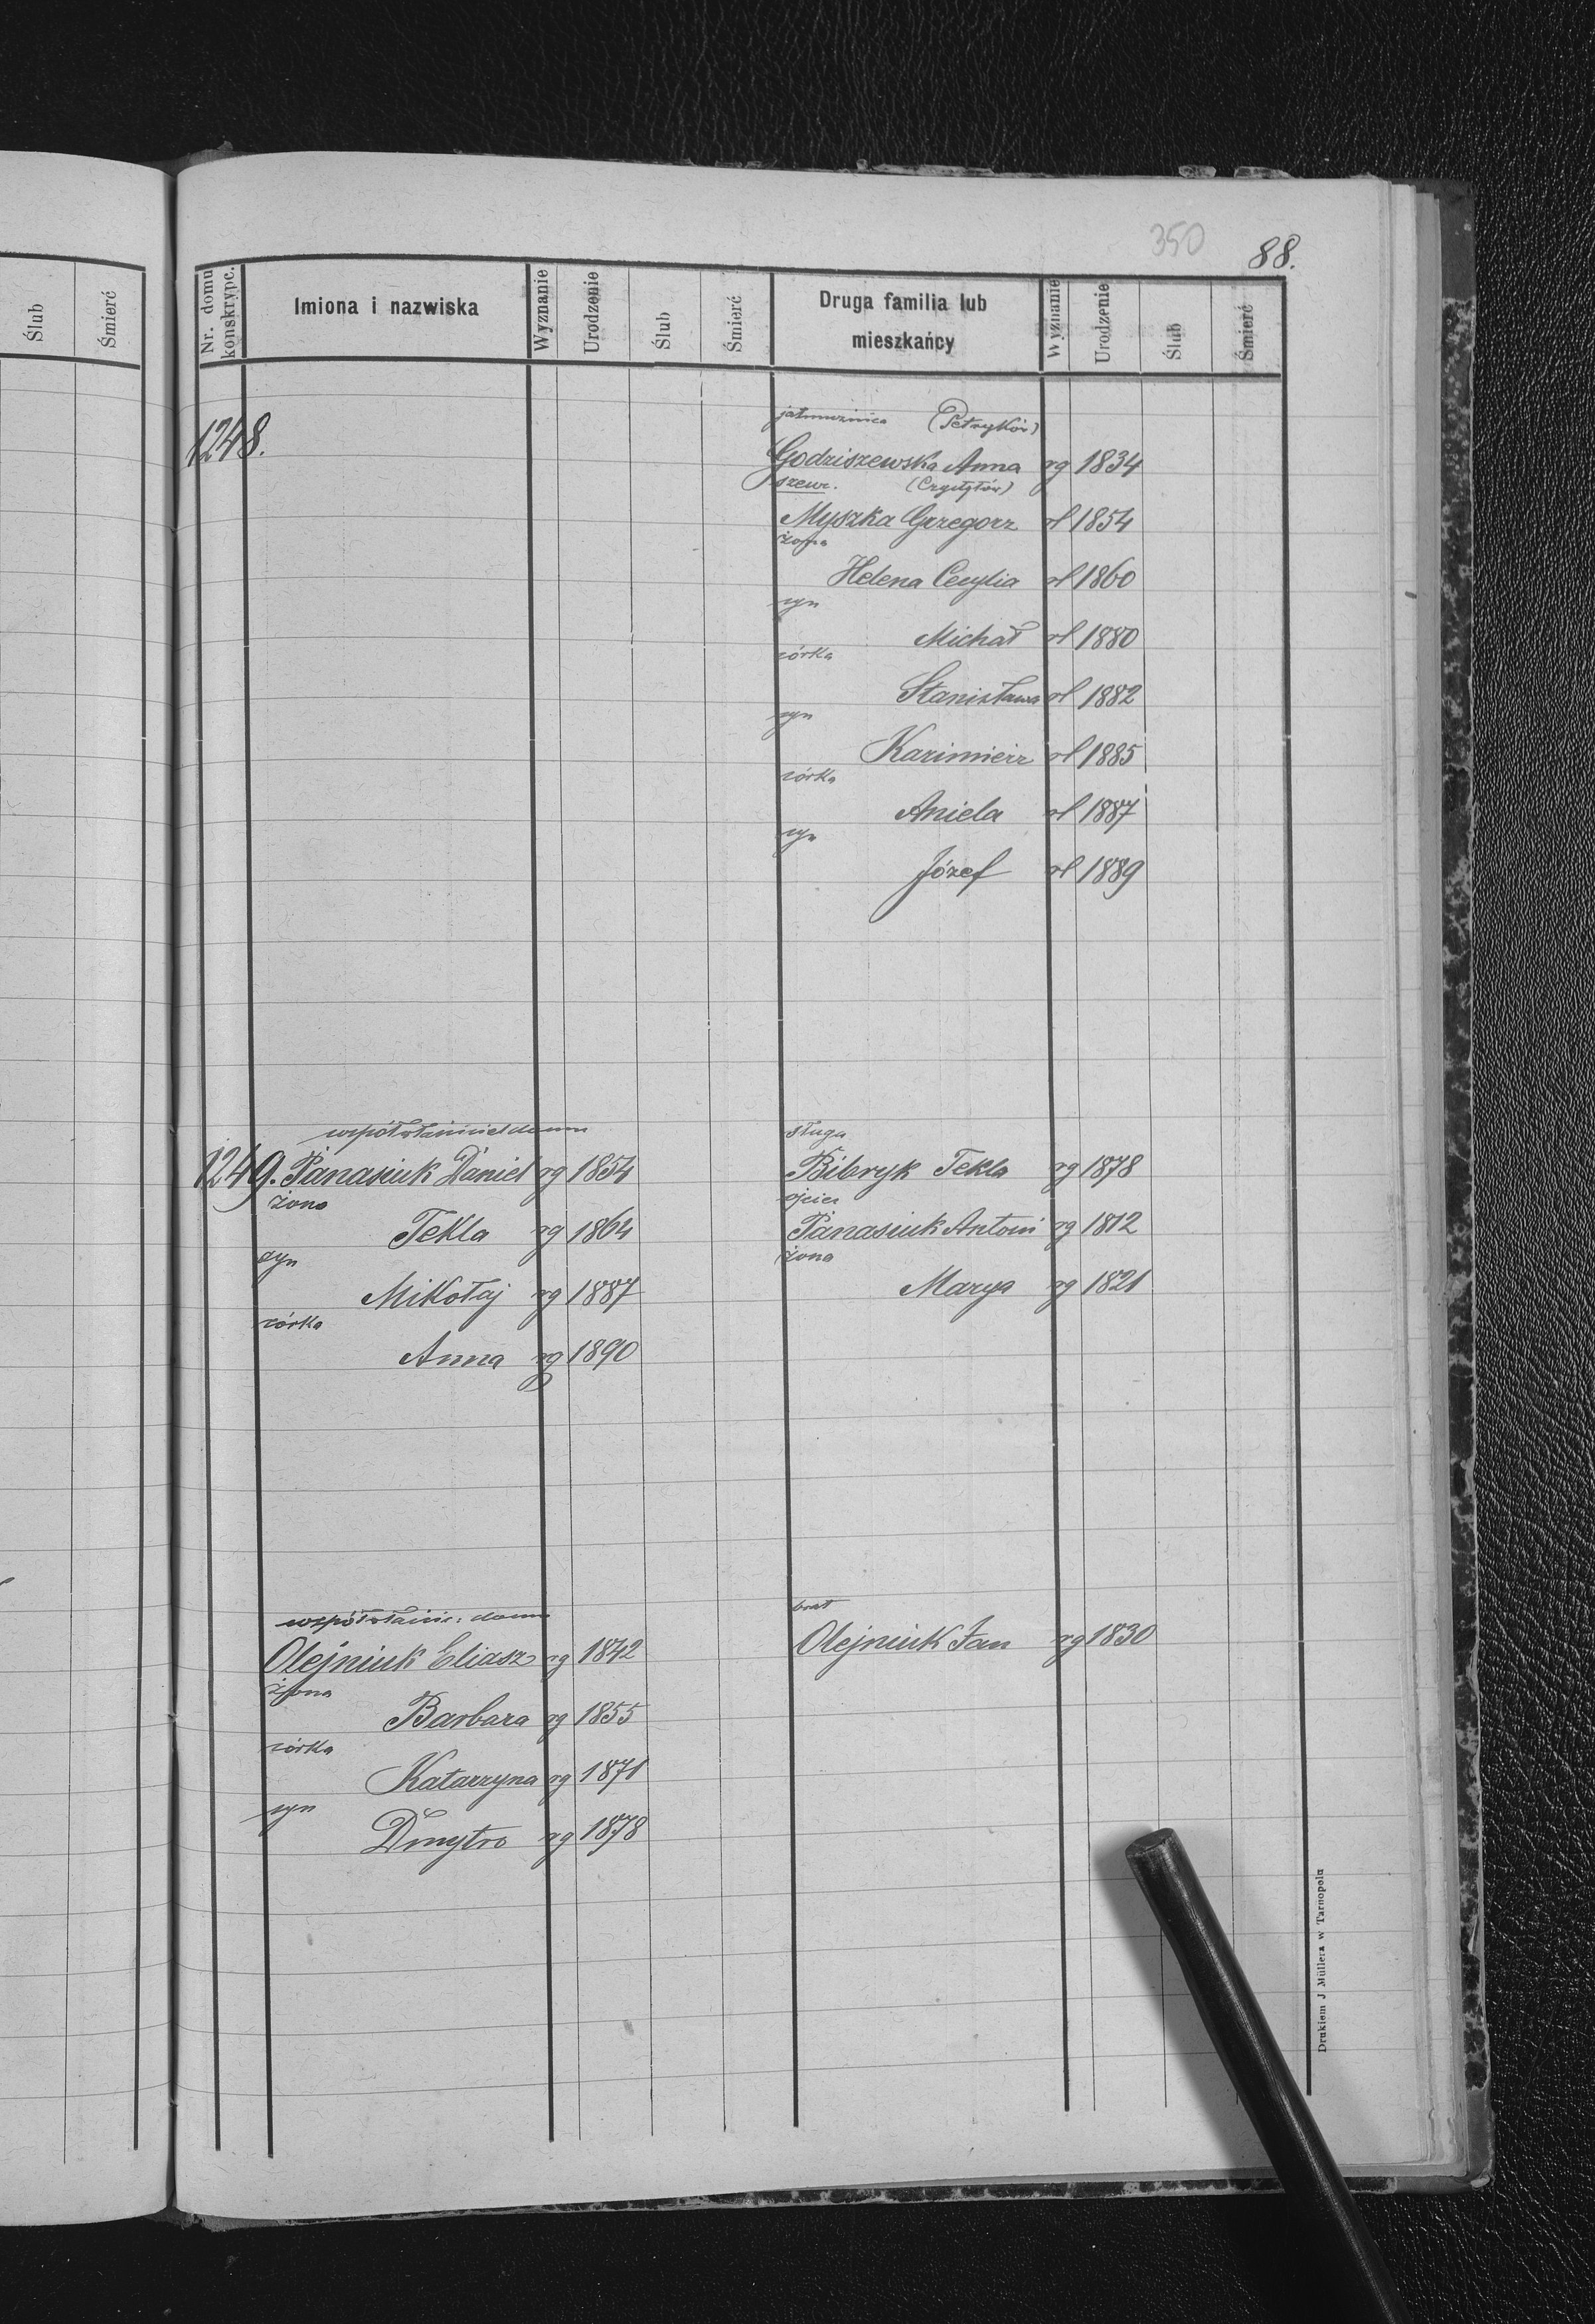 350
88.
Ślub Śmierć
Nr. domu konskrypc. Imiona i nazwiska Wyznanie Urodzenie Ślub Śmierć Druga familia lub mieszkańcy Wyznanie Urodzenie Ślub Śmierć
1248.
jałmużnica (Petryków)
Godziszewska Anna rg 1834
szewc.
Myszka Grzegorz rł 1854
żona
Helena Cecylia rł 1860
syn
Michał rł 1880
córka
Stanisława rł 1882
syn
Kazimierz rł 1885
córka
Aniela rł 1887
syn
Józef rł 1889
współwłaściciel domu
1249. Panasiuk Daniel rg 1854
żona
Tekla rg 1864
syn
Mikołaj rg 1887
córka
Anna rg 1890
sługa
Bibryk Tekla rg 1878
ojciec
Panasiuk Antoni rg 1812
żona
Marya rg 1821
współwłaśc: domu
Olejniuk Eliasz rg 1842
żona
Barbara rg 1855
córka
Katarzyna rg 1871
syn
Dmytro rg 1878
brat
Olejniuk Jan rg 1830
Drukiem J Müllera w Tarnopolu